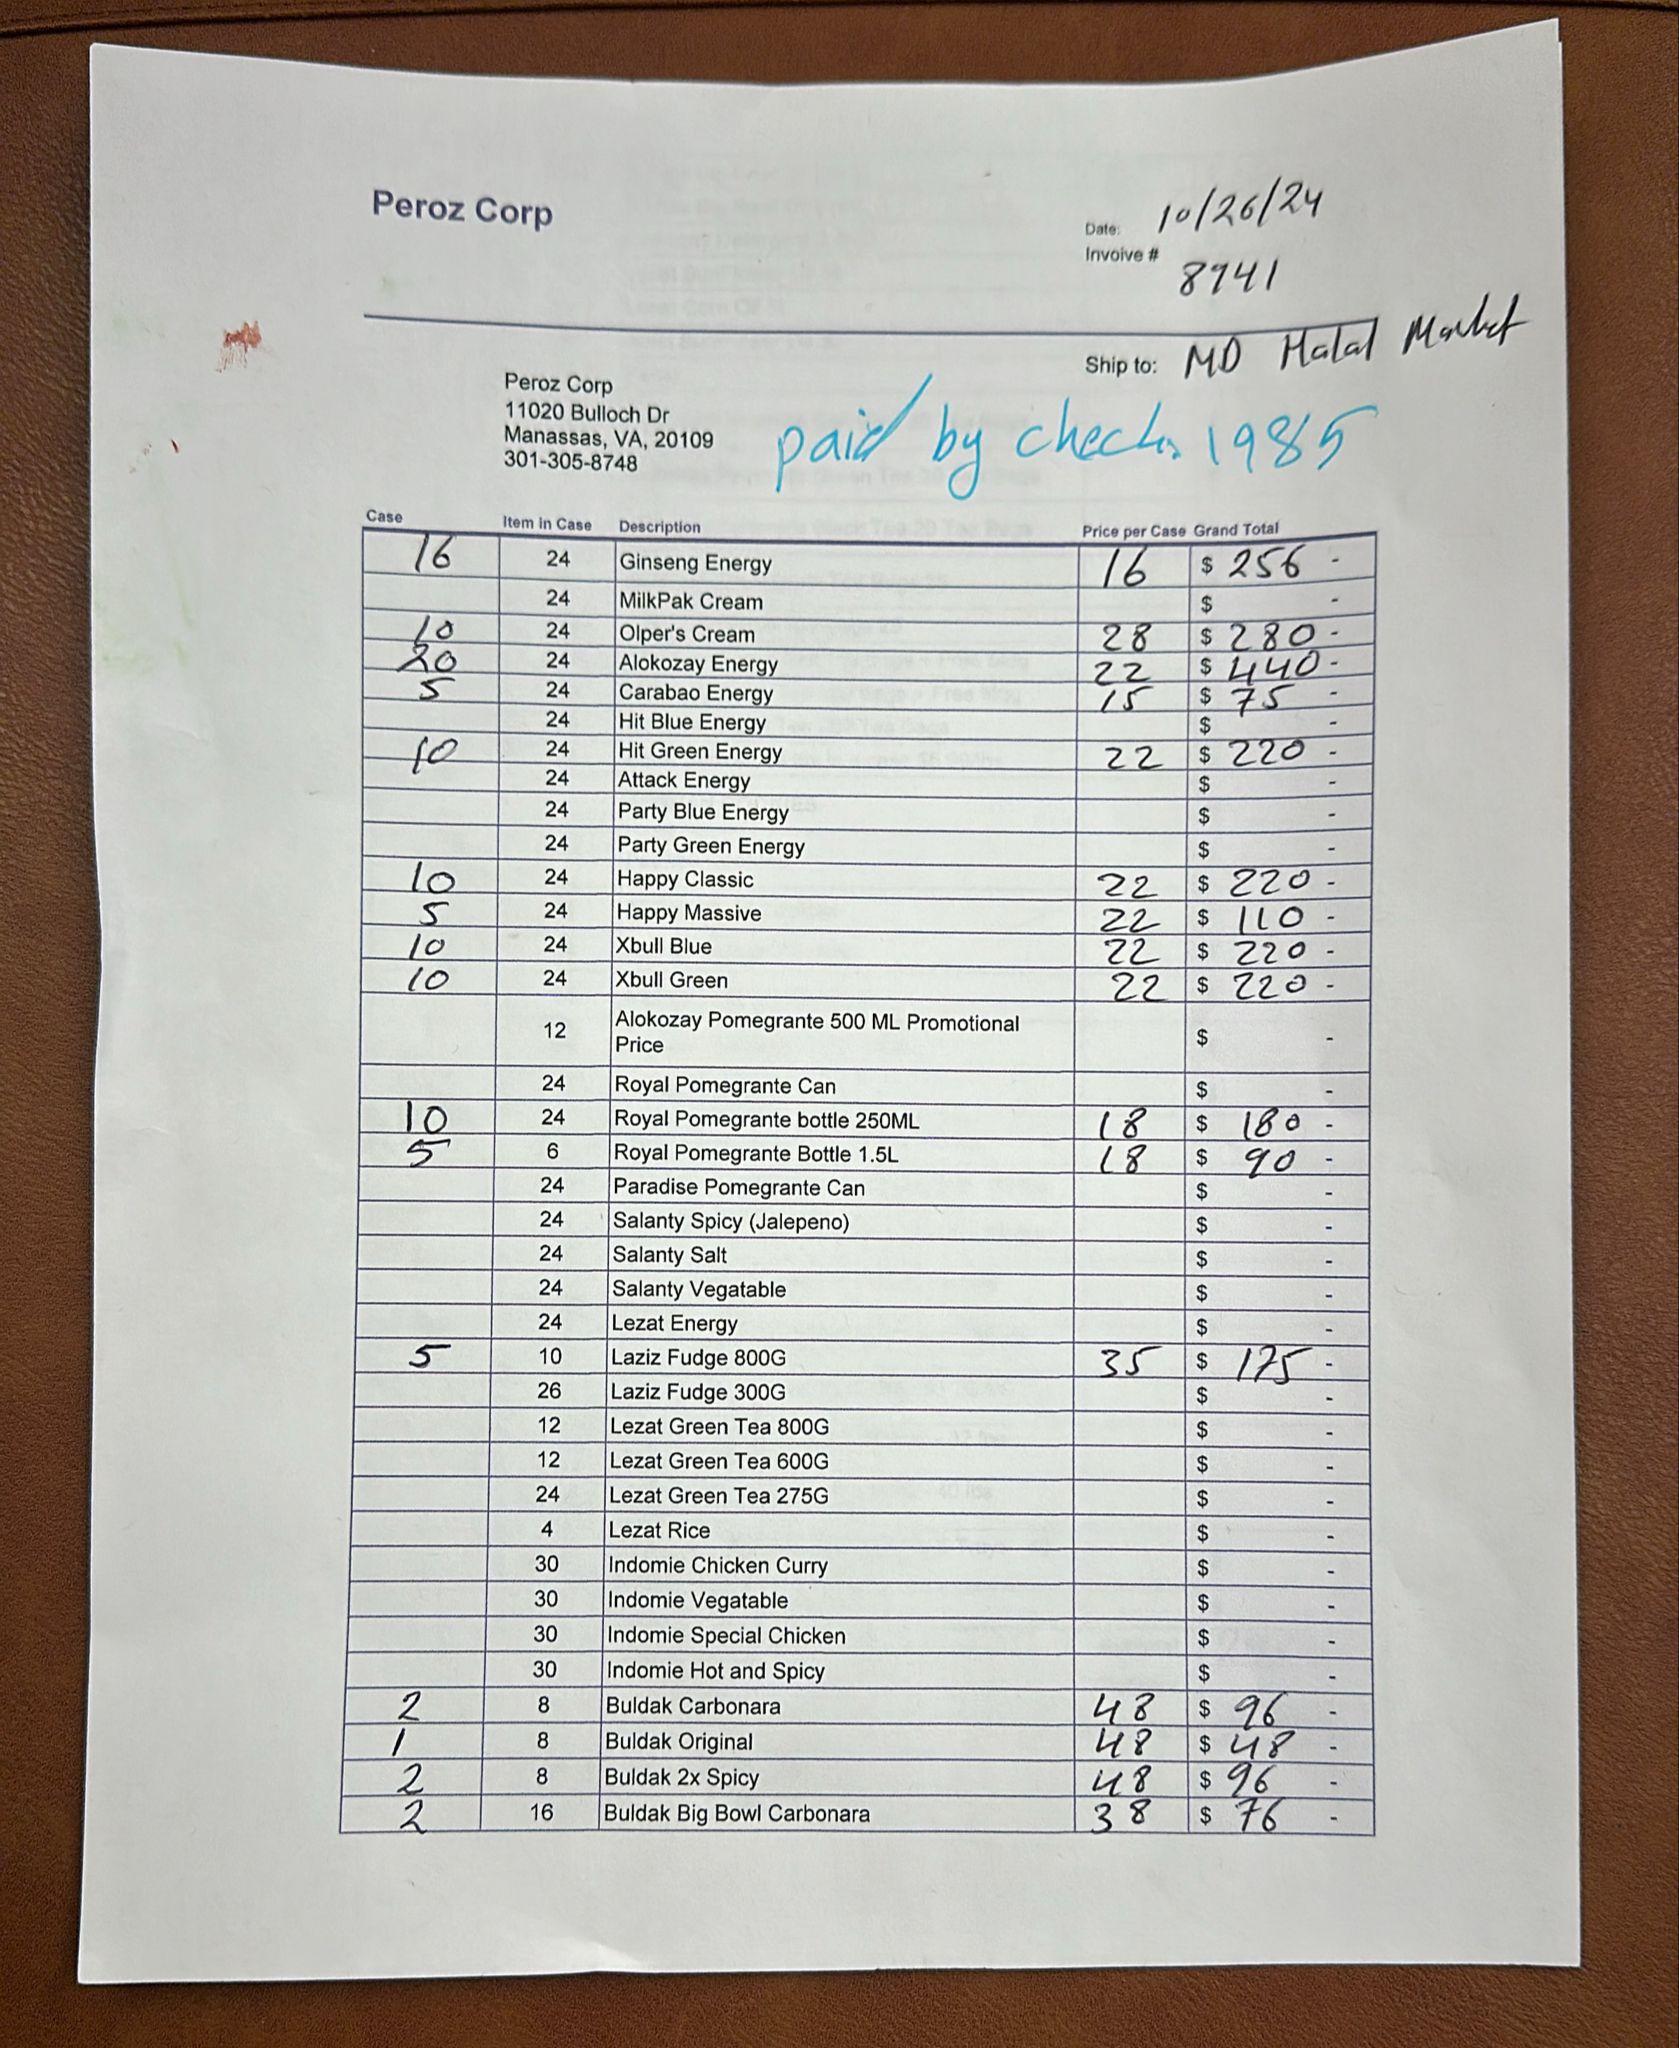 Peroz Corp
Date: 10/26/24
Invoive # 8941
Ship to: MD Halal Market
Peroz Corp
11020 Bulloch Dr
Manassas, VA, 20109
301-305-8748
paid by check 1985
Case Item in Case Description Price per Case Grand Total
16 24 Ginseng Energy 16 $ 256 -
24 MilkPak Cream $ -
10 24 Olper's Cream 28 $ 280 -
20 24 Alokozay Energy 22 $ 440 -
5 24 Carabao Energy 15 $ 75 -
24 Hit Blue Energy $ -
10 24 Hit Green Energy 22 $ 220 -
24 Attack Energy $ -
24 Party Blue Energy $ -
24 Party Green Energy $ -
10 24 Happy Classic 22 $ 220 -
5 24 Happy Massive 22 $ 110 -
10 24 Xbull Blue 22 $ 220 -
10 24 Xbull Green 22 $ 220 -
12 Alokozay Pomegrante 500 ML Promotional
Price $ -
24 Royal Pomegrante Can $ -
10 24 Royal Pomegrante bottle 250ML 18 $ 180 -
5 6 Royal Pomegrante Bottle 1.5L 18 $ 90 -
24 Paradise Pomegrante Can $ -
24 Salanty Spicy (Jalepeno) $ -
24 Salanty Salt $ -
24 Salanty Vegatable $ -
24 Lezat Energy $ -
5 10 Laziz Fudge 800G 35 $ 175 -
26 Laziz Fudge 300G $ -
12 Lezat Green Tea 800G $ -
12 Lezat Green Tea 600G $ -
24 Lezat Green Tea 275G $ -
4 Lezat Rice $ -
30 Indomie Chicken Curry $ -
30 Indomie Vegatable $ -
30 Indomie Special Chicken $ -
30 Indomie Hot and Spicy $ -
2 8 Buldak Carbonara 48 $ 96 -
1 8 Buldak Original 48 $ 48 -
2 8 Buldak 2x Spicy 48 $ 96 -
2 16 Buldak Big Bowl Carbonara 38 $ 76 -